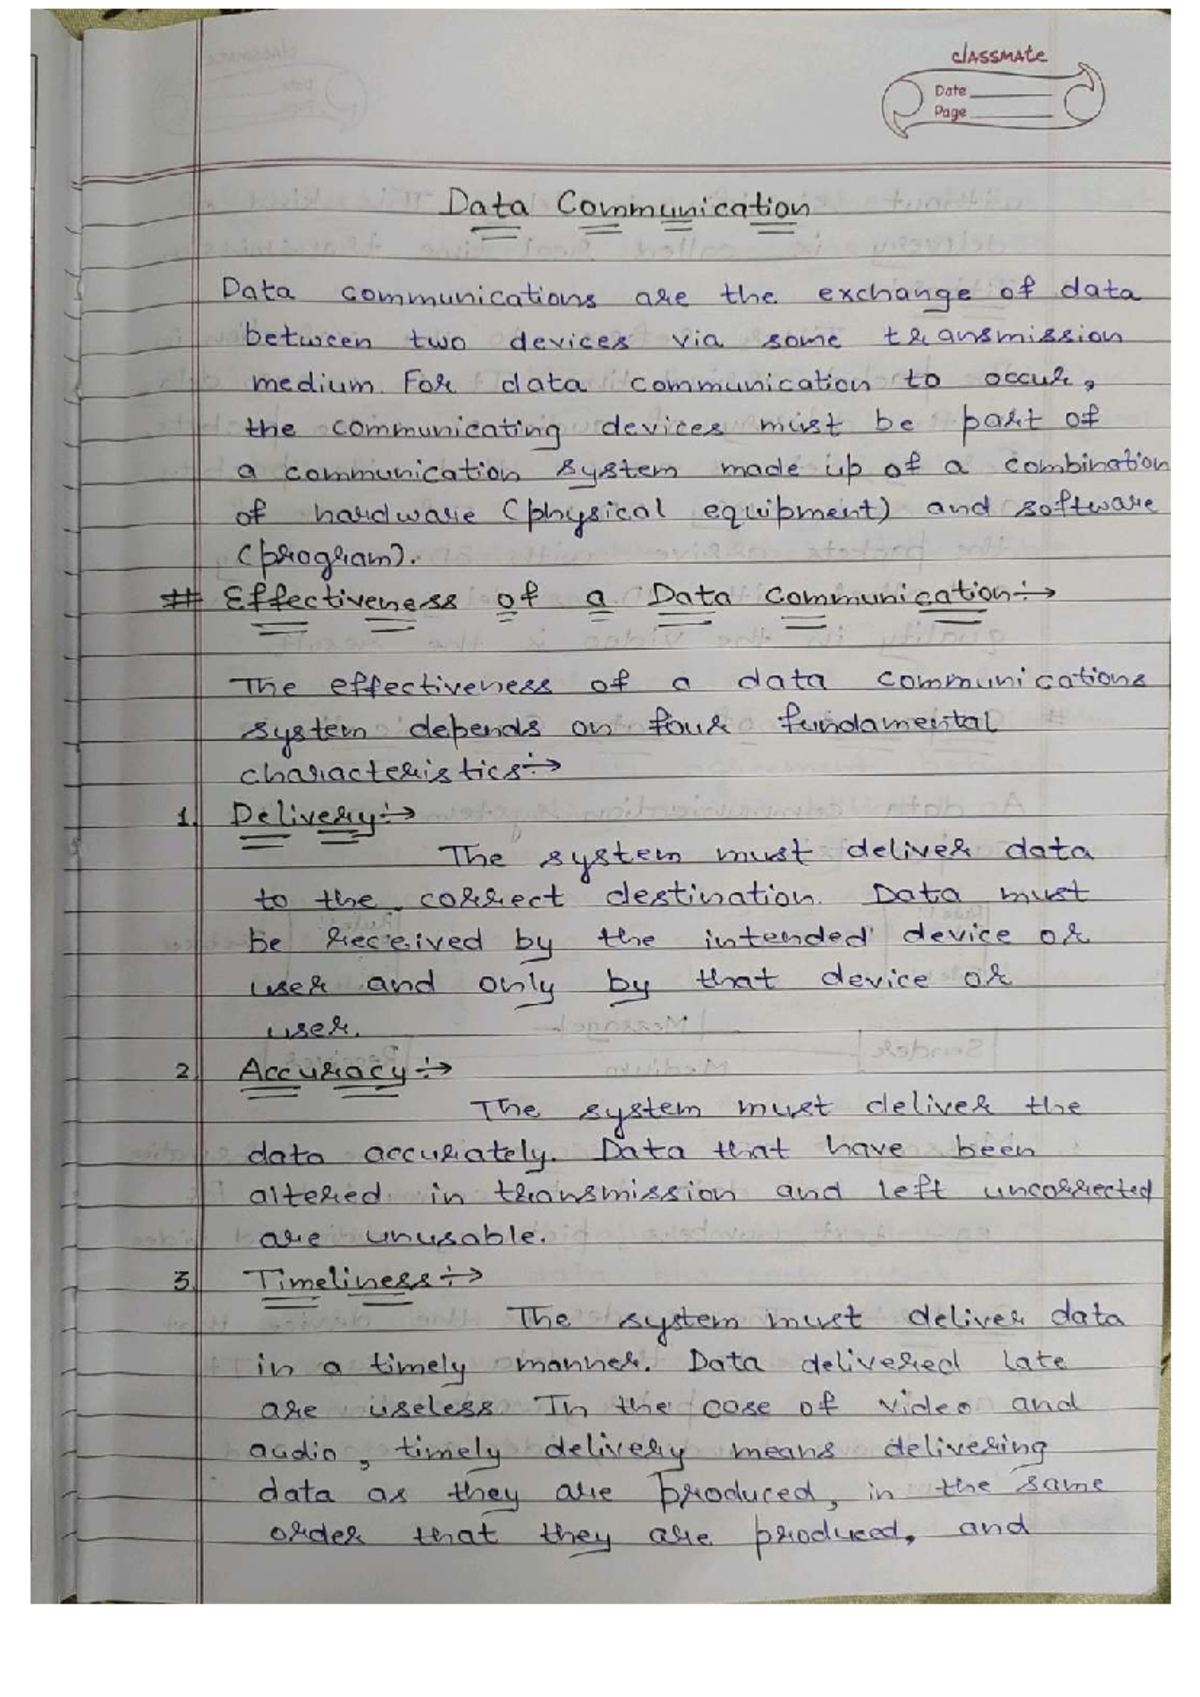 classmate
Date
Page
Data Communication
Data communications are the exchange of data
between two devices via some transmission
medium. For data communication to occur,
the communicating devices must be part of
a communication system made up of a combination
of hardware (physical equipment) and software
(program).
# Effectiveness of a Data Communication:→
The effectiveness of a data communications
system depends on four fundamental
characteristics:→
1. Delivery:→
The system must deliver data
to the correct destination. Data must
be received by the intended device or
user and only by that device or
user.
2. Accuracy:→
The system must deliver the
data accurately. Data that have been
altered in transmission and left uncorrected
are unusable.
3. Timeliness:→
The system must deliver data
in a timely manner. Data delivered late
are useless. In the case of video and
audio, timely delivery means delivering
data as they are produced, in the same
order that they are produced, and